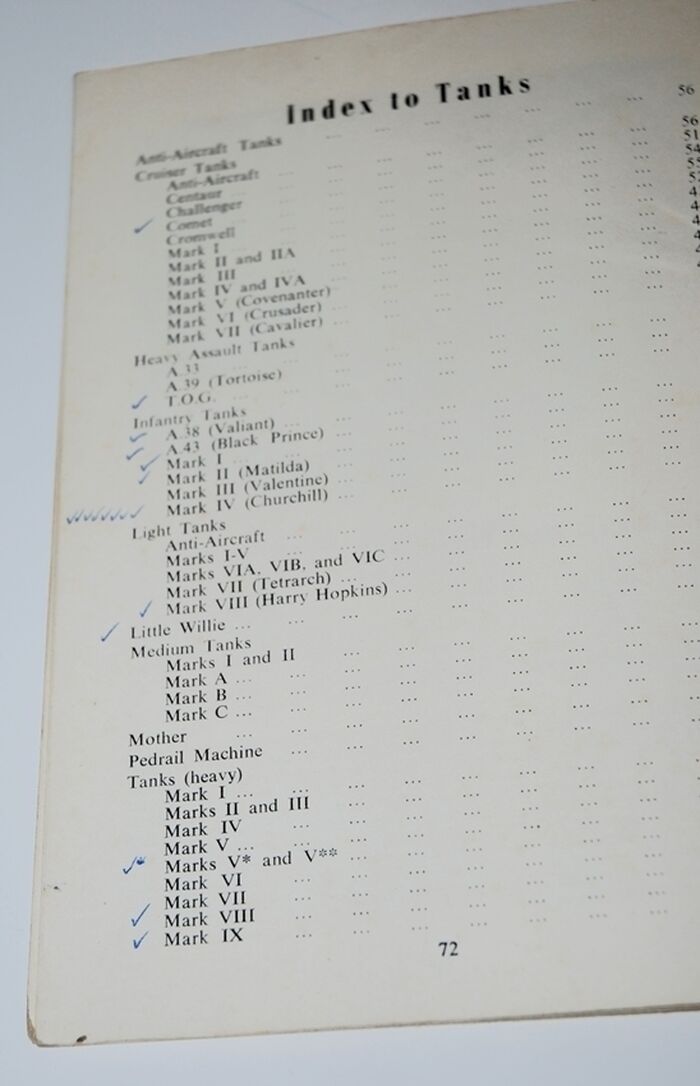 Index to Tanks
Anti-Aircraft Tanks ... ... ... ... ... ... ... 56
Cruiser Tanks
Anti-Aircraft ... ... ... ... ... ... ... 56
Centaur ... ... ... ... ... ... ... 51
Challenger ... ... ... ... ... ... ... 54
Comet ... ... ... ... ... ... ...
Cromwell ... ... ... ... ... ... ...
Mark I ... ... ... ... ... ... ...
Mark II and IIA ... ... ... ... ... ...
Mark III ... ... ... ... ... ... ...
Mark IV and IVA ... ... ... ... ... ...
Mark V (Covenanter) ... ... ... ... ... ...
Mark VI (Crusader) ... ... ... ... ... ...
Mark VII (Cavalier) ... ... ... ... ... ...
Heavy Assault Tanks
A.33 ... ... ... ... ... ... ...
A.39 (Tortoise) ... ... ... ... ... ...
T.O.G. ... ... ... ... ... ... ...
Infantry Tanks
A.38 (Valiant) ... ... ... ... ... ... ...
A.43 (Black Prince) ... ... ... ... ... ...
Mark I ... ... ... ... ... ... ...
Mark II (Matilda) ... ... ... ... ... ...
Mark III (Valentine) ... ... ... ... ... ...
Mark IV (Churchill) ... ... ... ... ... ...
Light Tanks
Anti-Aircraft ... ... ... ... ... ... ...
Marks I-V ... ... ... ... ... ... ...
Marks VIA, VIB, and VIC ... ... ... ... ...
Mark VII (Tetrarch) ... ... ... ... ... ...
Mark VIII (Harry Hopkins) ... ... ... ... ...
Little Willie ... ... ... ... ... ... ... ...
Medium Tanks
Marks I and II ... ... ... ... ... ...
Mark A ... ... ... ... ... ... ... ...
Mark B ... ... ... ... ... ... ... ...
Mark C ... ... ... ... ... ... ... ...
Mother ... ... ... ... ... ... ... ...
Pedrail Machine ... ... ... ... ... ... ...
Tanks (heavy)
Mark I ... ... ... ... ... ... ... ...
Marks II and III ... ... ... ... ... ...
Mark IV ... ... ... ... ... ... ...
Mark V ... ... ... ... ... ... ... ...
Marks V* and V** ... ... ... ... ... ...
Mark VI ... ... ... ... ... ... ...
Mark VII ... ... ... ... ... ... ...
Mark VIII ... ... ... ... ... ... ...
Mark IX ... ... ... ... ... ... ...
72